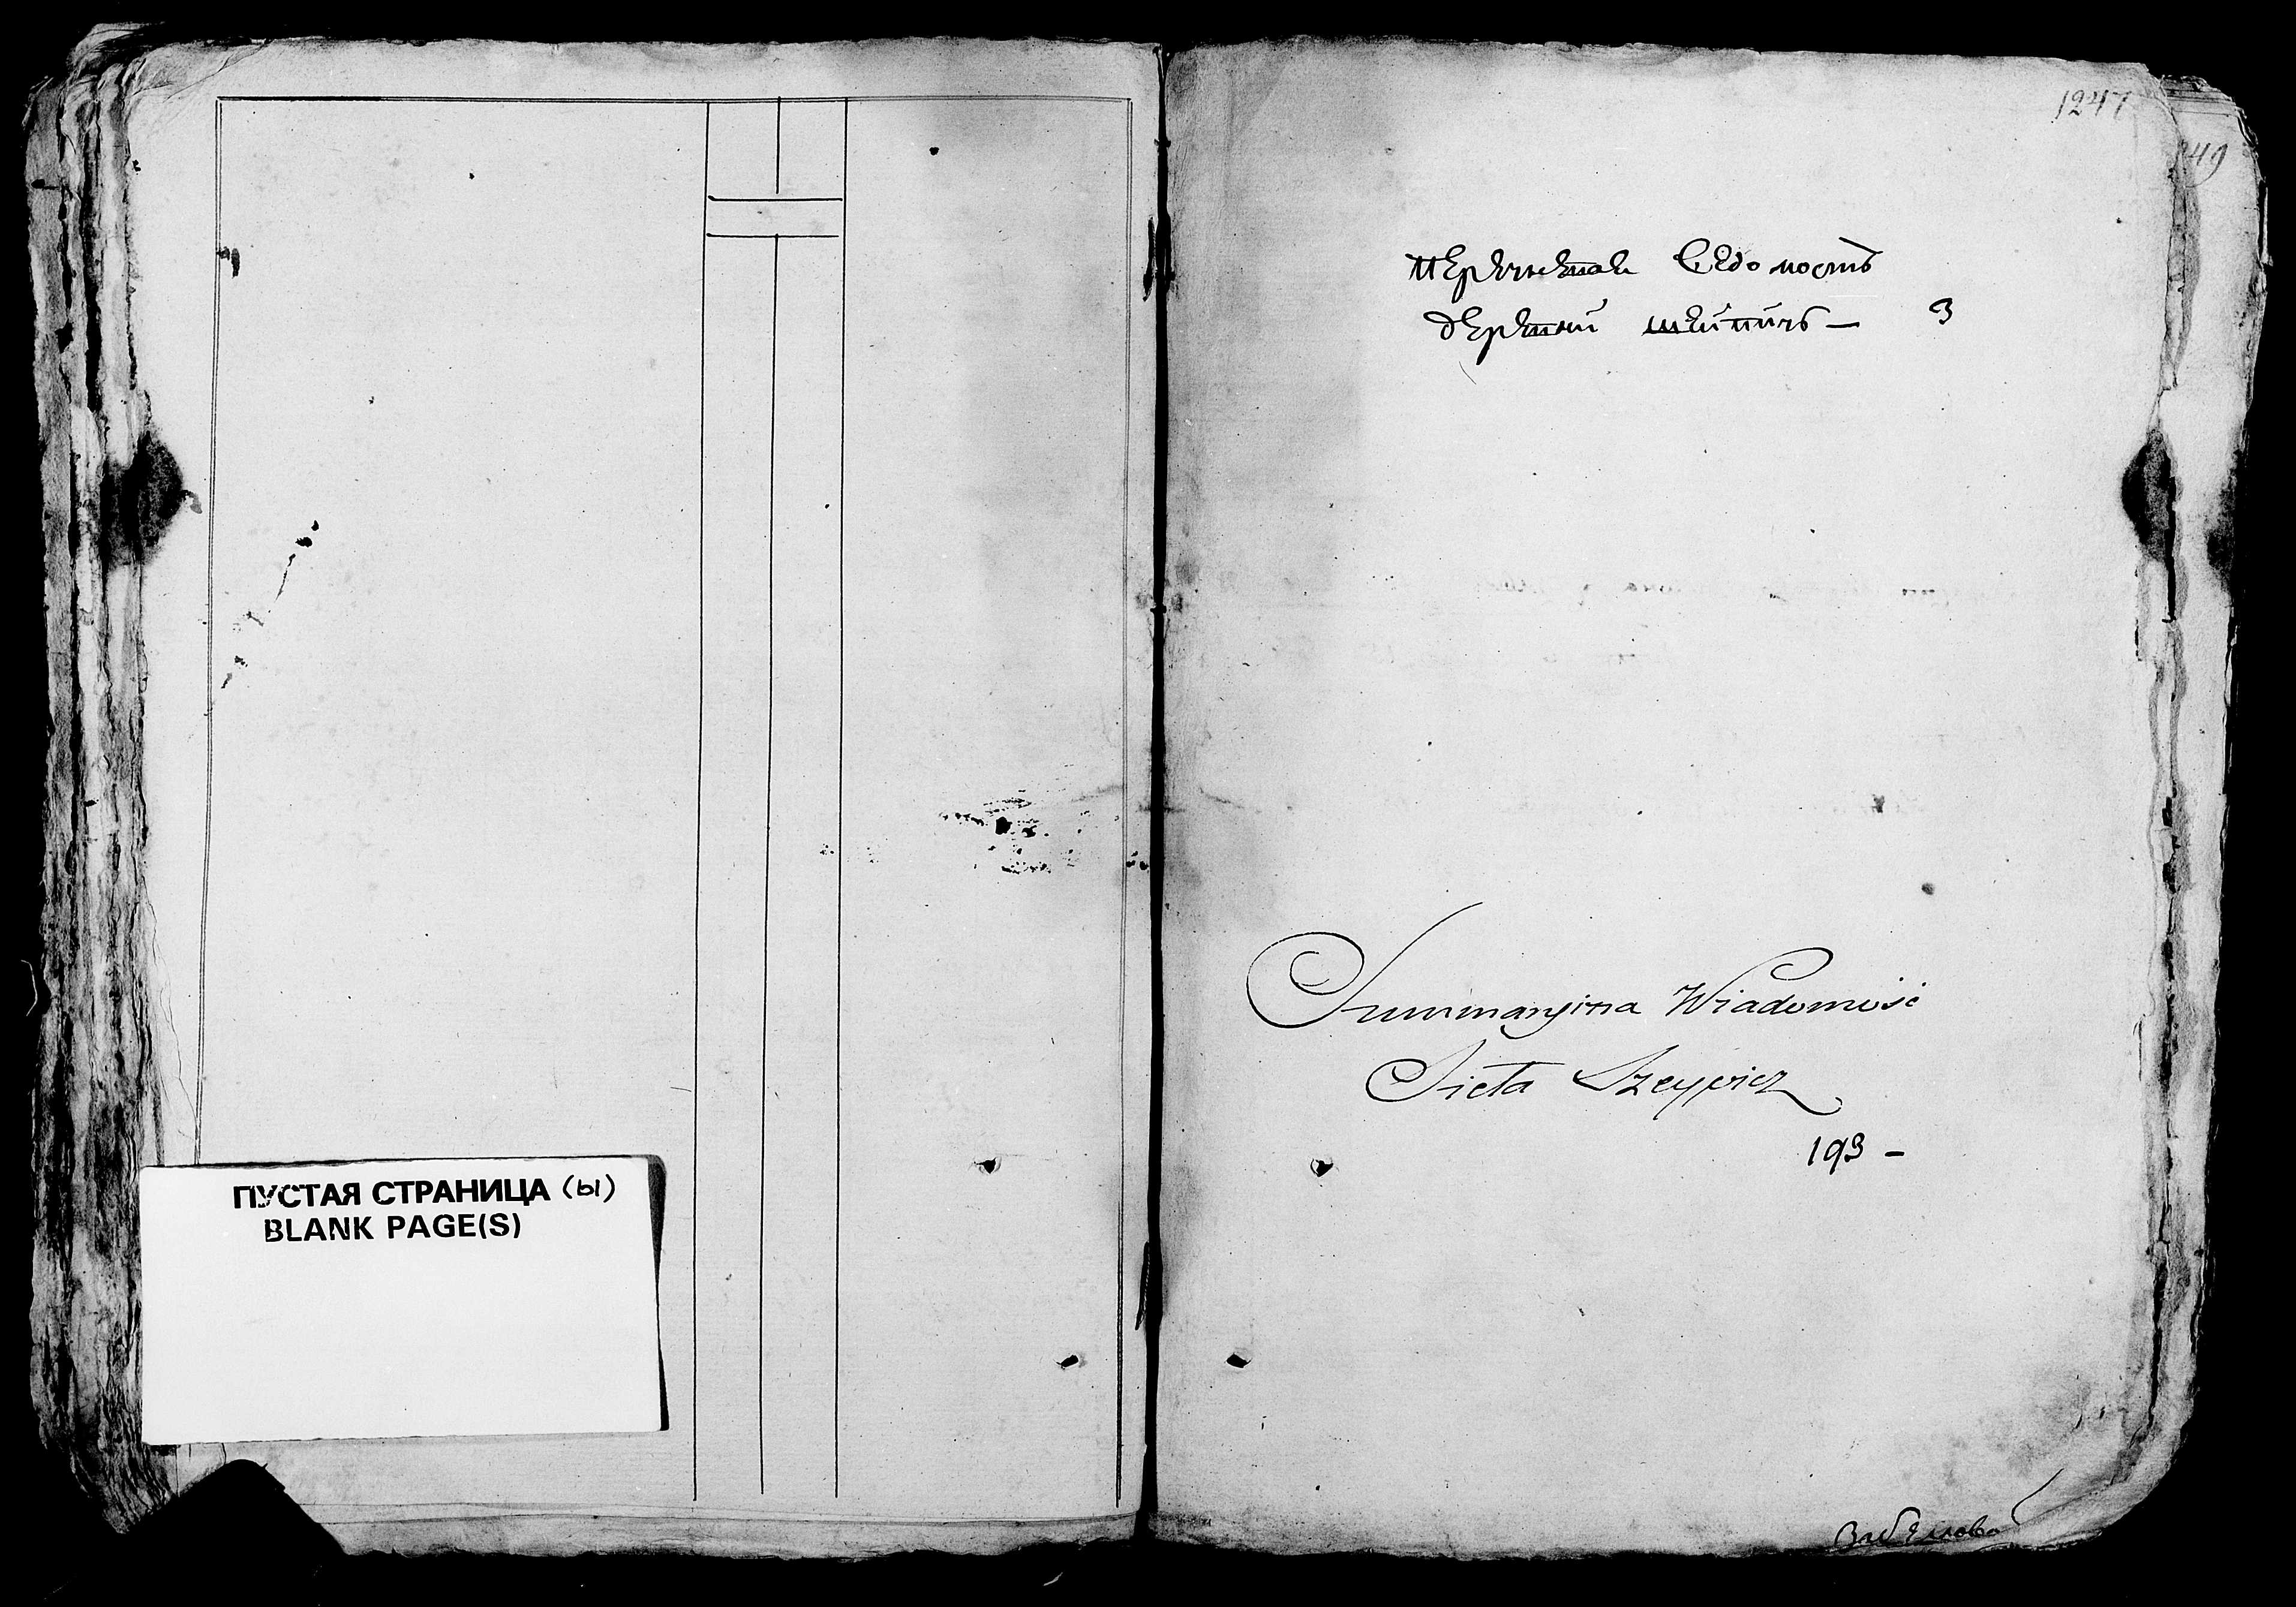 ПУСТАЯ СТРАНИЦА (ы)
BLANK PAGE(S)
1247
49
перечневая ведомость
деревни шейпичъ — 3
Summaryina Wiadomość
Sieła Szeypicz
193 -